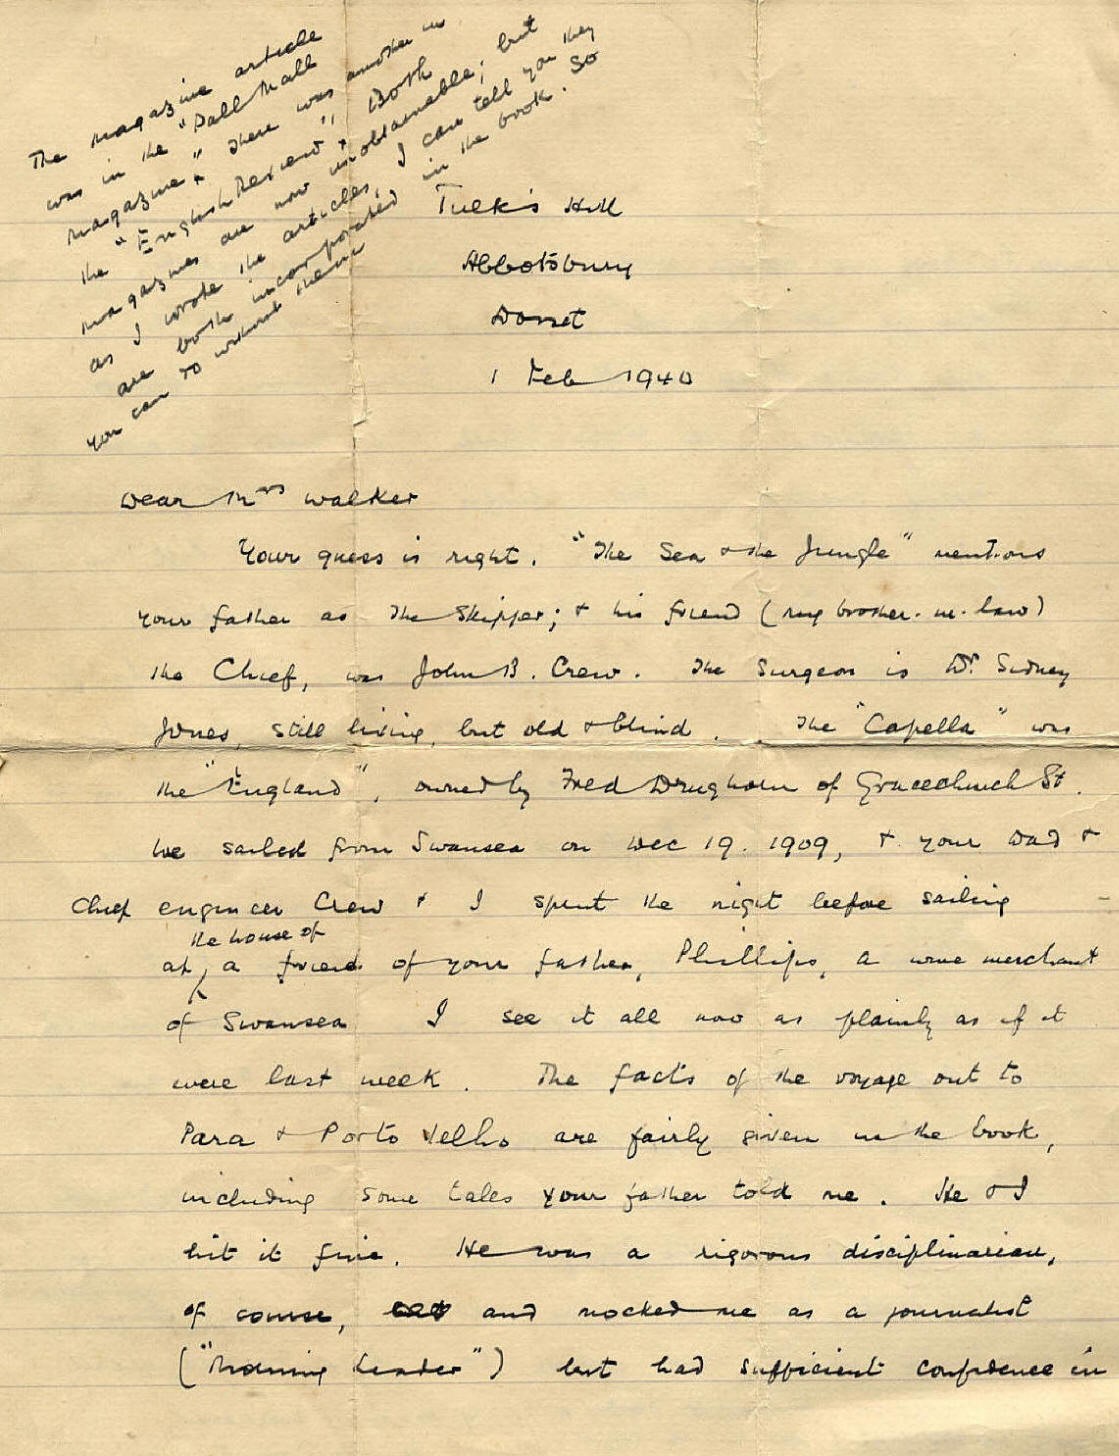 The magazine article
was in the "Pall Mall
magazine" & there was another in
the "English Review". Both
magazines are now unobtainable; but
as I wrote the articles, I can tell you they
are both incorporated in the book. So
you can do without them
Tulk's Hill
Abbotsbury
Dorset
1 Feb 1940
Dear Mrs Walker
Your guess is right. "The Sea & the Jungle" mentions
your father as the Skipper; & his friend (my brother-in-law)
the Chief, was John B. Crew. The Surgeon is Dr. Sidney
Jones, still living, but old & blind. The "Capella" was
the "England", owned by Fred Drughorn of Gracechurch St.
We sailed from Swansea on Dec 19. 1909, & your Dad &
Chief engineer Crew & I spent the night before sailing
at the house of a friend of your father, Phillips, a wine merchant
of Swansea I see it all now as plainly as if it
were last week. The facts of the voyage out to
Para & Porto Velho are fairly given in the book,
including some tales your father told me. He & I
hit it fine. He was a rigorous disciplinarian,
of course, and mocked me as a journalist
("Morning Leader") but had sufficient confidence in